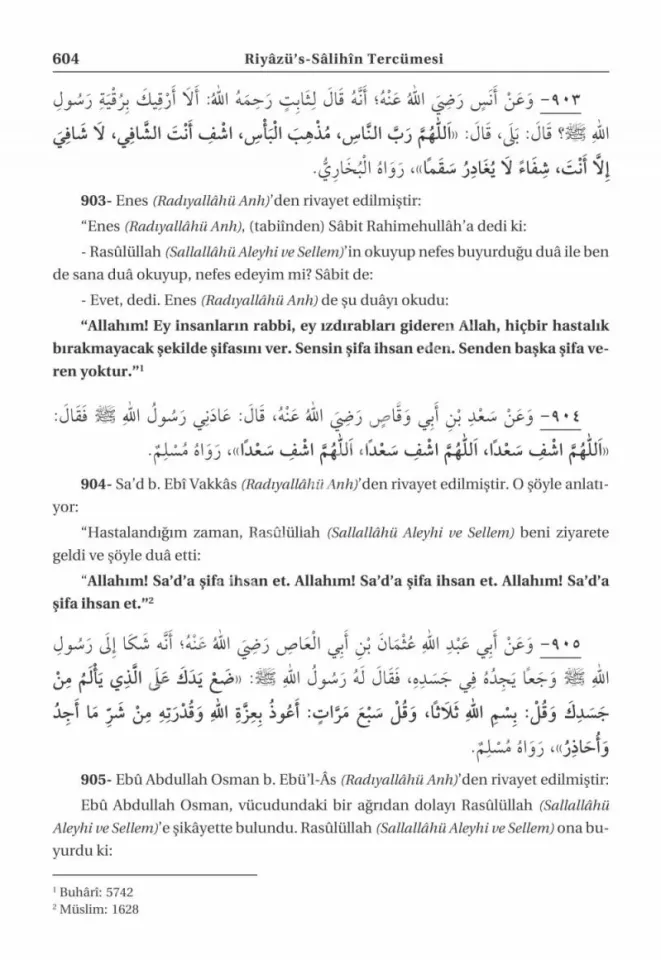 604 Riyâzü’s-Sâlihîn Tercümesi
٩٠٣- وَعَنْ أَنَسٍ رَضِيَ اللهُ عَنْهُ؛ أَنَّهُ قَالَ لِثَابِتٍ رَحِمَهُ اللهُ: أَلَا أَرْقِيكَ بِرُقْيَةِ رَسُولِ
اللهِ ﷺ؟ قَالَ: بَلَى، قَالَ: «اَللّٰهُمَّ رَبَّ النَّاسِ، مُذْهِبَ الْبَأْسِ، اشْفِ أَنْتَ الشَّافِي، لَا شَافِيَ
إِلَّا أَنْتَ، شِفَاءً لَا يُغَادِرُ سَقَمًا»، رَوَاهُ الْبُخَارِيُّ.
903- Enes (Radıyallâhü Anh)’den rivayet edilmiştir:
“Enes (Radıyallâhü Anh), (tabiînden) Sâbit Rahimehullâh’a dedi ki:
- Rasûlüllah (Sallallâhü Aleyhi ve Sellem)’in okuyup nefes buyurduğu duâ ile ben
de sana duâ okuyup, nefes edeyim mi? Sâbit de:
- Evet, dedi. Enes (Radıyallâhü Anh) de şu duâyı okudu:
“Allahım! Ey insanların rabbi, ey ızdırabları gideren Allah, hiçbir hastalık
bırakmayacak şekilde şifasını ver. Sensin şifa ihsan eden. Senden başka şifa ve-
ren yoktur.”¹
٩٠٤- وَعَنْ سَعْدِ بْنِ أَبِي وَقَّاصٍ رَضِيَ اللهُ عَنْهُ، قَالَ: عَادَنِي رَسُولُ اللهِ ﷺ فَقَالَ:
«اَللّٰهُمَّ اشْفِ سَعْدًا، اَللّٰهُمَّ اشْفِ سَعْدًا، اَللّٰهُمَّ اشْفِ سَعْدًا»، رَوَاهُ مُسْلِمٌ.
904- Sa’d b. Ebî Vakkâs (Radıyallâhü Anh)’den rivayet edilmiştir. O şöyle anlatı-
yor:
“Hastalandığım zaman, Rasûlüllah (Sallallâhü Aleyhi ve Sellem) beni ziyarete
geldi ve şöyle duâ etti:
“Allahım! Sa’d’a şifa ihsan et. Allahım! Sa’d’a şifa ihsan et. Allahım! Sa’d’a
şifa ihsan et.”²
٩٠٥- وَعَنْ أَبِي عَبْدِ اللهِ عُثْمَانَ بْنِ أَبِي الْعَاصِ رَضِيَ اللهُ عَنْهُ؛ أَنَّه شَكَا إِلَى رَسُولِ
اللهِ ﷺ وَجَعًا يَجِدُهُ فِي جَسَدِهِ، فَقَالَ لَهُ رَسُولُ اللهِ ﷺ: «ضَعْ يَدَكَ عَلَى الَّذِي يَأْلَمُ مِنْ
جَسَدِكَ وَقُلْ: بِسْمِ اللهِ ثَلَاثًا، وَقُلْ سَبْعَ مَرَّاتٍ: أَعُوذُ بِعِزَّةِ اللهِ وَقُدْرَتِهِ مِنْ شَرِّ مَا أَجِدُ
وَأُحَاذِرُ»، رَوَاهُ مُسْلِمٌ.
905- Ebû Abdullah Osman b. Ebü’l-Âs (Radıyallâhü Anh)’den rivayet edilmiştir:
Ebû Abdullah Osman, vücudundaki bir ağrıdan dolayı Rasûlüllah (Sallallâhü
Aleyhi ve Sellem)’e şikâyette bulundu. Rasûlüllah (Sallallâhü Aleyhi ve Sellem) ona bu-
yurdu ki:
¹ Buhârî: 5742
² Müslim: 1628